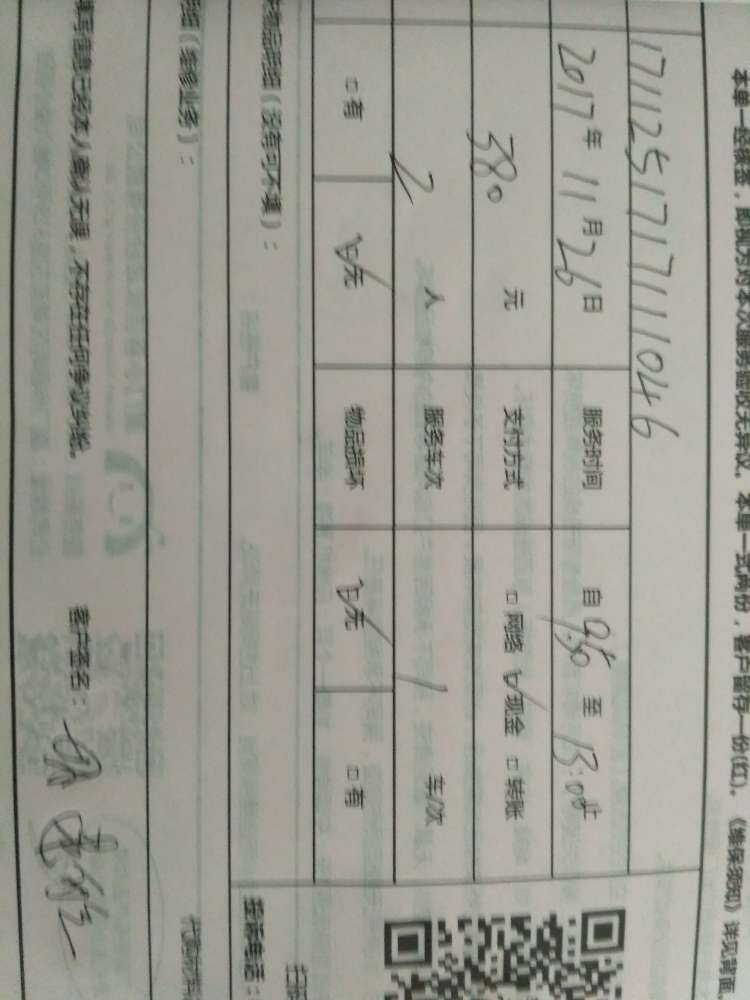 本单一经接签，即视为对本次服务验收无异议。本单一式两份，客户留存一份(红)。《维保须知》详见背面
171125171711046
2017年11月26日 服务时间 自9:30至13:00
380元 支付方式 □网络 ☑现金 □转账
2人 服务车次 1车/次
□有 ☑无 物品损坏 ☑无 □有
(没有可不填)：
(维修业务)：
投诉电话：
填写信息已经本人确认无误，不存在任何争议纠纷。 客户签名：